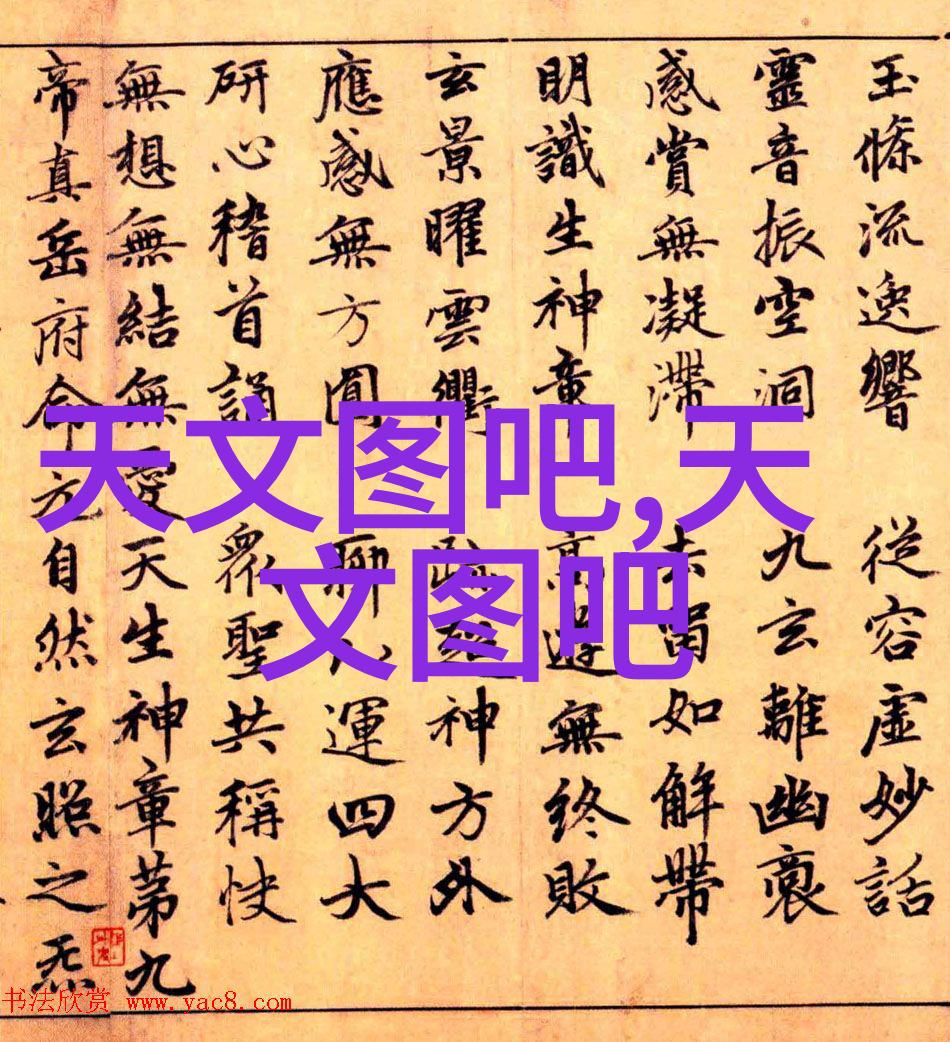 玉條流逸響 從容虛妙話
靈音振空洞 九玄離幽
感賞無凝滯 去留如解帶
明識生神章 高遊無終敗
玄景曜雲衢 神方外
應感無方圓 聊以運四大
研心稽首誦 衆聖共稱快
無想無結無愛天生神章第九
帝真岳府命元自然玄照之炁
天文图吧,天
文图吧
书法欣赏 www.yac8.com